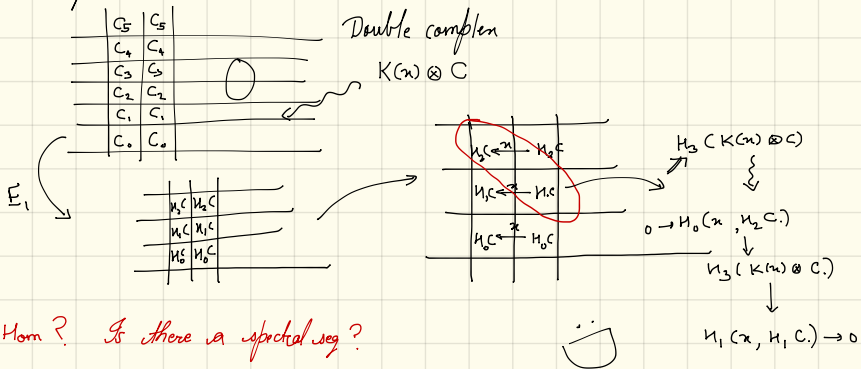 C5 C5
C4 C4
C3 C3
C2 C2
C1 C1
C0 C0
Double complex
K(x) ⊗ C
0
E1
H2C H2C
H1C H1C
H0C H0C
H2C ←x— H2C
H1C ←x— H1C
H0C ←x— H0C
H3 ( K(x) ⊗ C)
0 → H0(x , H2C.)
H3 ( K(x) ⊗ C.)
H1 (x, H1 C.) → 0
Hom? Is there a spectral seq?